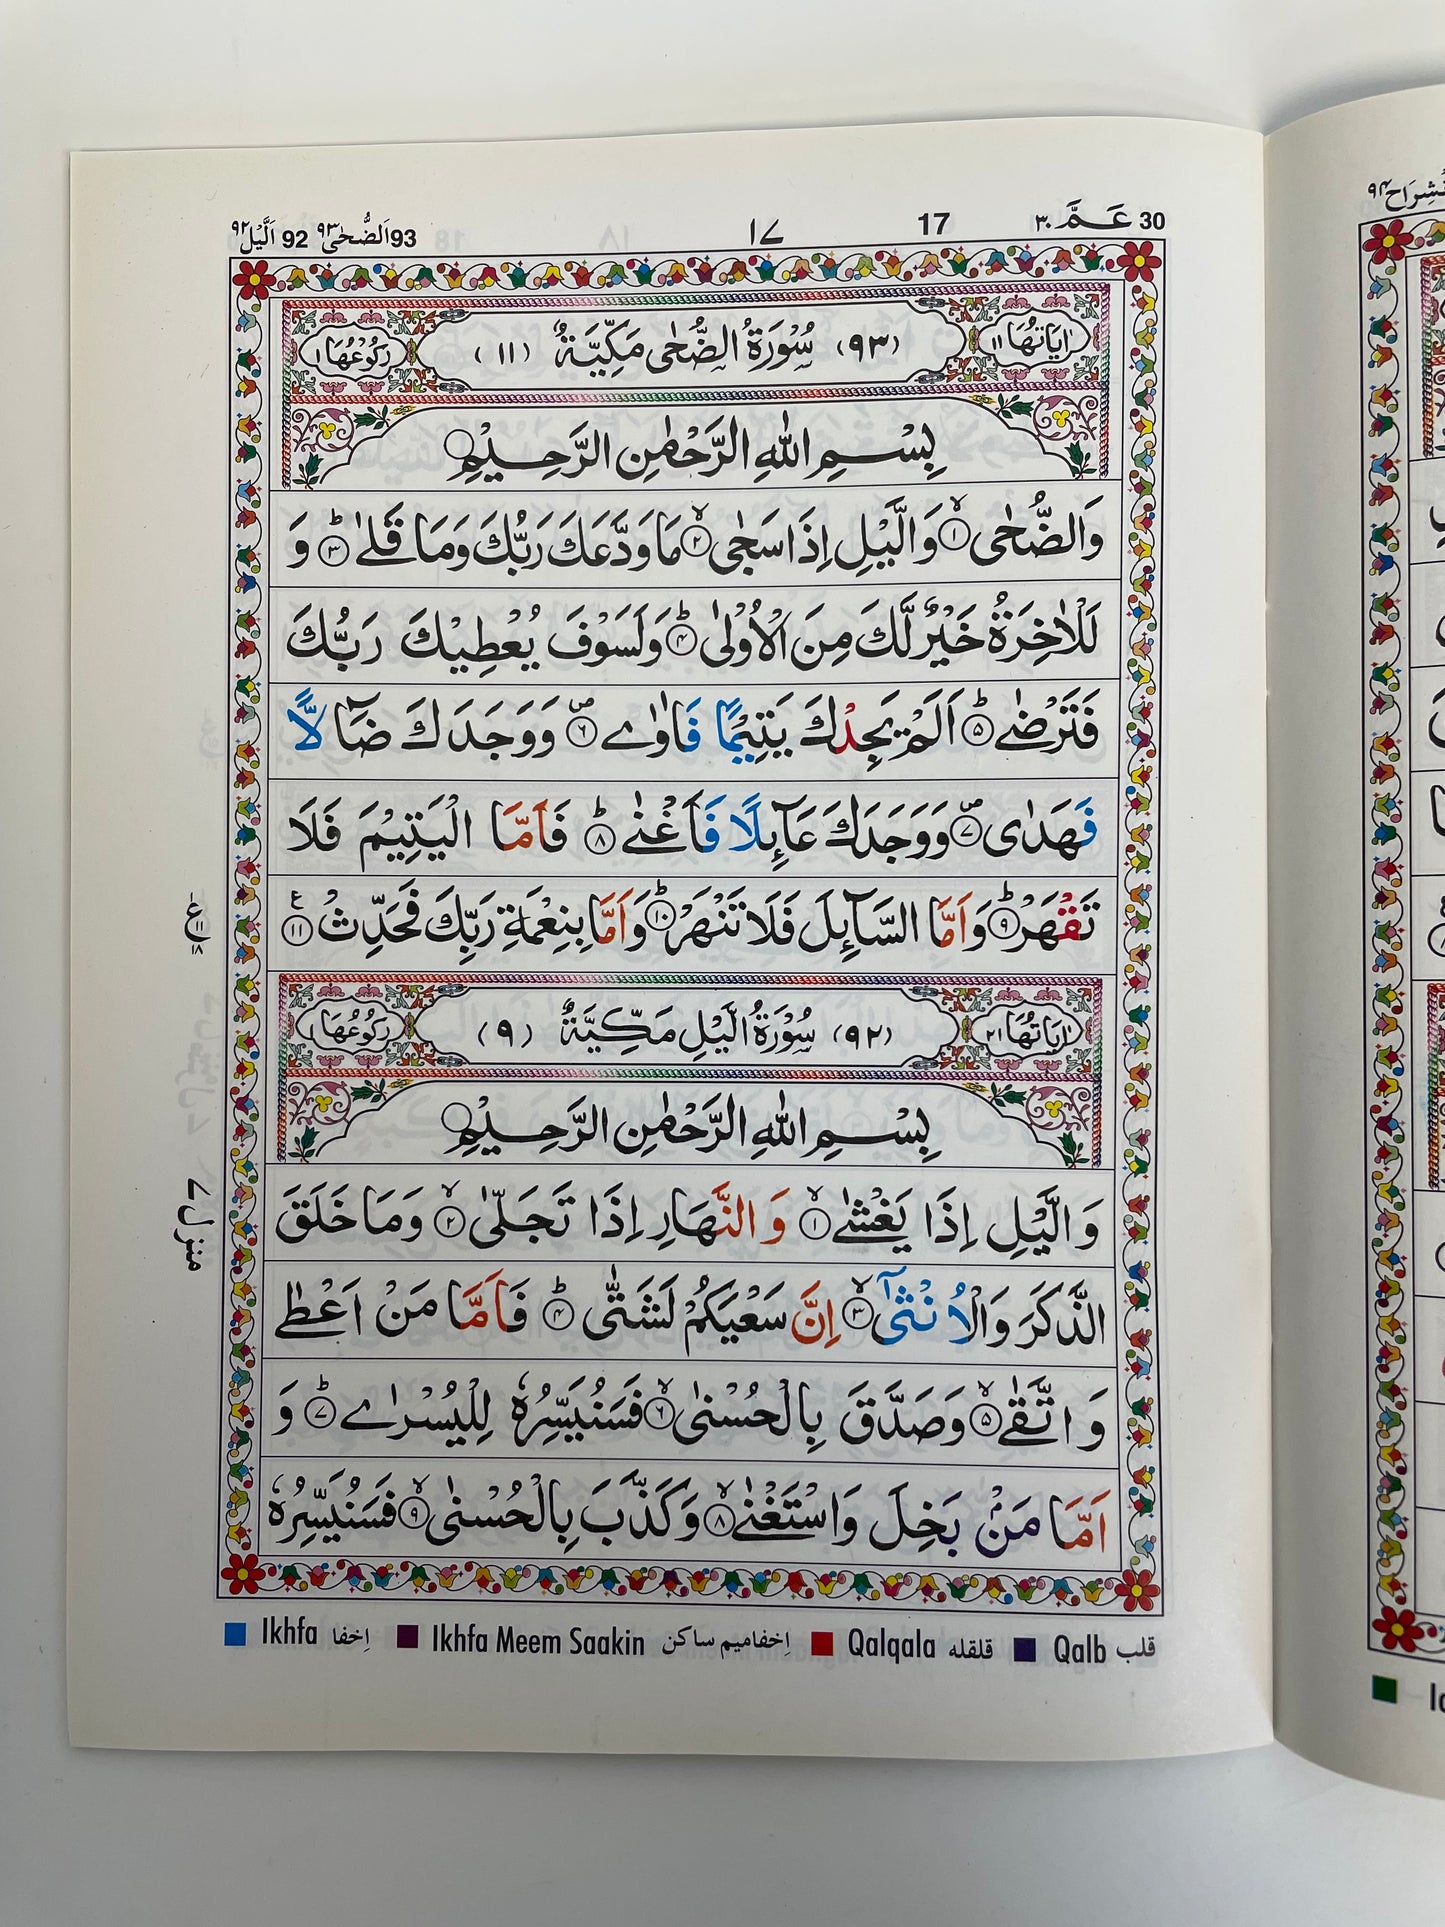 30 عَمَّ ٣٠
17
١٧
93 اَلضُّحٰى ٩٣ 92 اَلَّيْل ٩٢
اٰيَاتُهَا ١١ (٩٣) سُوْرَةُ الضُّحٰى مَكِّيَّةٌ (١١) رُكُوْعُهَا ١
بِسْمِ اللهِ الرَّحْمٰنِ الرَّحِيْمِ
وَالضُّحٰى ١ وَالَّيْلِ اِذَا سَجٰى ٢ مَا وَدَّعَكَ رَبُّكَ وَمَا قَلٰى ٣ وَ
لَلْاٰخِرَةُ خَيْرٌ لَّكَ مِنَ الْاُوْلٰى ٤ وَلَسَوْفَ يُعْطِيْكَ رَبُّكَ
فَتَرْضٰى ٥ اَلَمْ يَجِدْكَ يَتِيْمًا فَاٰوٰى ٦ وَوَجَدَكَ ضَآلًّا
فَهَدٰى ٧ وَوَجَدَكَ عَآئِلًا فَاَغْنٰى ٨ فَاَمَّا الْيَتِيْمَ فَلَا
تَقْهَرْ ٩ وَاَمَّا السَّآئِلَ فَلَا تَنْهَرْ ١٠ وَاَمَّا بِنِعْمَةِ رَبِّكَ فَحَدِّثْ ١١
ع ١١ ١٨
اٰيَاتُهَا ٢١ (٩٢) سُوْرَةُ الَّيْلِ مَكِّيَّةٌ (٩) رُكُوْعُهَا ١
بِسْمِ اللهِ الرَّحْمٰنِ الرَّحِيْمِ
وَالَّيْلِ اِذَا يَغْشٰى ١ وَالنَّهَارِ اِذَا تَجَلّٰى ٢ وَمَا خَلَقَ
منزل ٧
الذَّكَرَ وَالْاُنْثٰٓى ٣ اِنَّ سَعْيَكُمْ لَشَتّٰى ٤ فَاَمَّا مَنْ اَعْطٰى
وَاتَّقٰى ٥ وَصَدَّقَ بِالْحُسْنٰى ٦ فَسَنُيَسِّرُهٗ لِلْيُسْرٰى ٧ وَ
اَمَّا مَنْۢ بَخِلَ وَاسْتَغْنٰى ٨ وَكَذَّبَ بِالْحُسْنٰى ٩ فَسَنُيَسِّرُهٗ
Ikhfa اِخفا Ikhfa Meem Saakin اِخفا میم ساکن Qalqala قلقله Qalb قلب